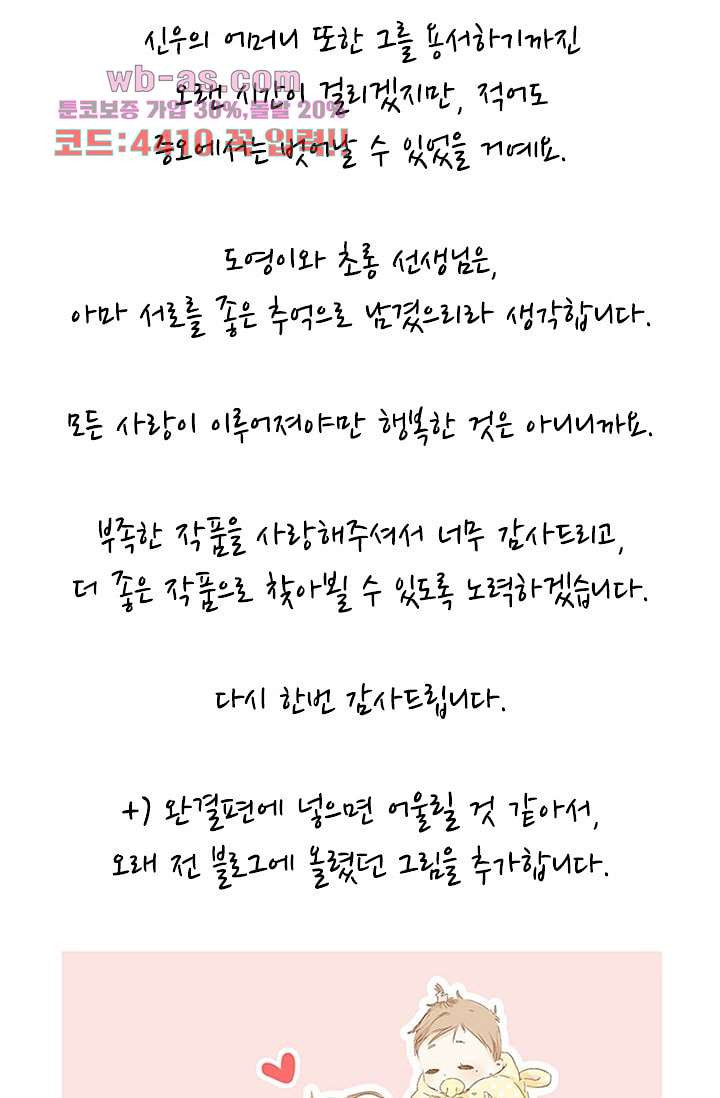 신우의 어머니 또한 그를 용서하기까진
wb-as.com
오랜 시간이 걸리겠지만, 적어도
툰코보증 가입 30%,돌발 20%
코드:4410 꼭 입력!!
증오에서는 벗어날 수 있었을 거예요.
도영이와 초롱 선생님은,
아마 서로를 좋은 추억으로 남겼으리라 생각합니다.
모든 사랑이 이루어져야만 행복한 것은 아니니까요.
부족한 작품을 사랑해주셔서 너무 감사드리고,
더 좋은 작품으로 찾아뵐 수 있도록 노력하겠습니다.
다시 한번 감사드립니다.
+) 완결편에 넣으면 어울릴 것 같아서,
오래 전 블로그에 올렸던 그림을 추가합니다.